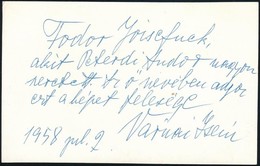 Fodor Józsefnek,
akit Peterdi Andor nagyon
szeretett s ő nevében adom
ezt a képet felesége
1958 jul. 9. Várnai Zseni